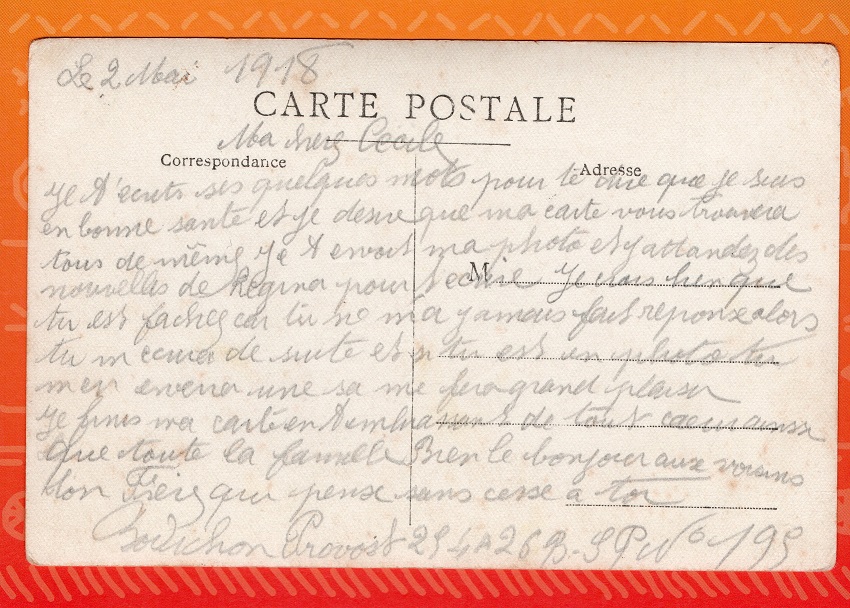 Le 2 Mai 1918
CARTE POSTALE
Ma chere Cécile
Correspondance
Adresse
Je t'écrits ses quelques mots pour te dire que je suis
en bonne santé et je desire que ma carte vous trouvera
tous de même Je t envoit ma photo et j attandez des
nouvelles de Regina pour t ecrire Je vois bien que
M
tu est fachez car tu ne m'a jamais fait reponse alors
tu m ecrira de suite et si tu est en photo tu
m en enverra une sa me fera grand plaisir
Je finis ma carte en t embrassant de tout coeur ainsi
que toute la famille Bien le bonjour aux voisins
ton Frère qui pense sans cesse a toi
Provost 254 26 B. S P N° 195